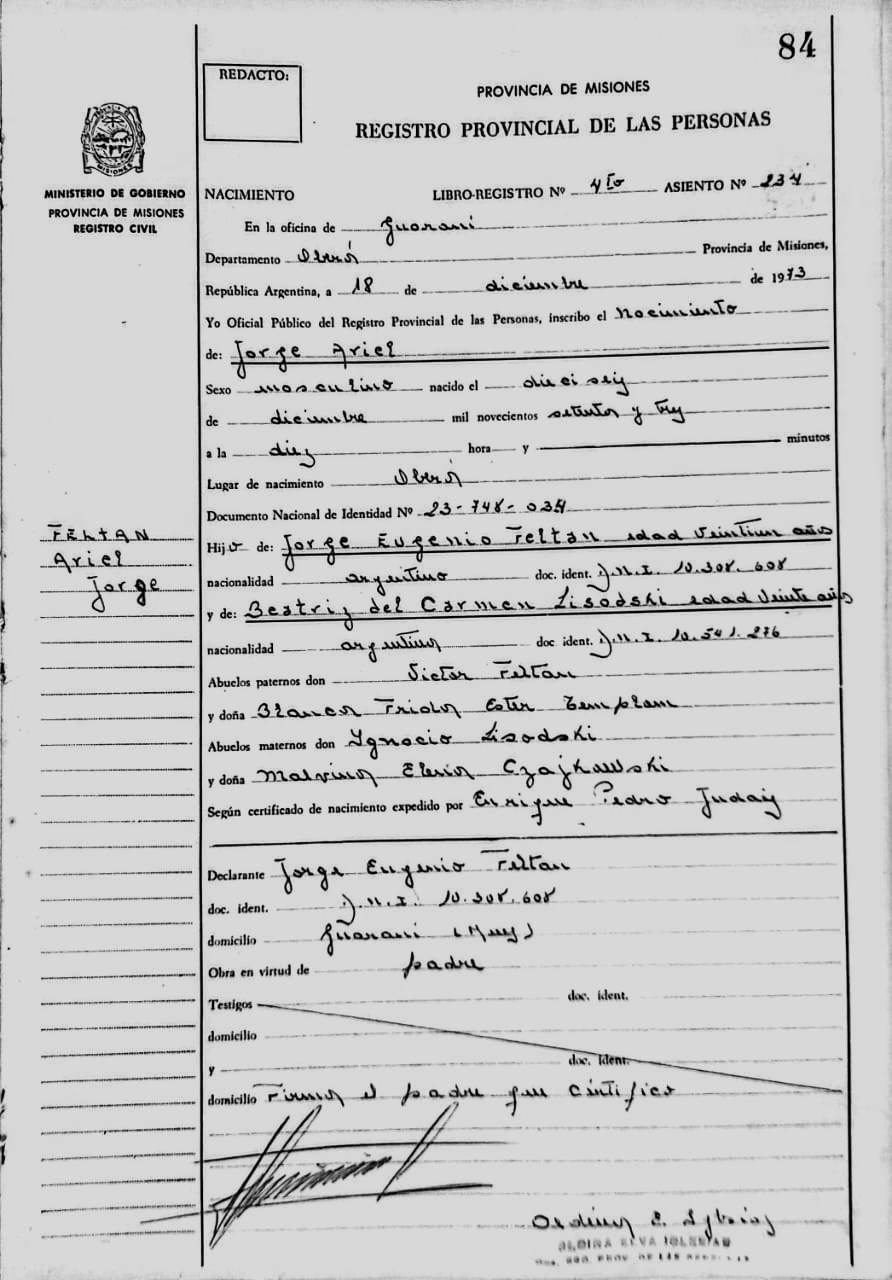 84
REDACTO:
PROVINCIA DE MISIONES
REGISTRO PROVINCIAL DE LAS PERSONAS
MISIONES
MINISTERIO DE GOBIERNO
PROVINCIA DE MISIONES
REGISTRO CIVIL
NACIMIENTO LIBRO-REGISTRO Nº 4to ASIENTO Nº 234
En la oficina de Guarani
Departamento Oberá Provincia de Misiones,
República Argentina, a 18 de diciembre de 1973
Yo Oficial Público del Registro Provincial de las Personas, inscribo el Nacimiento
de: Jorge Ariel
Sexo masculino nacido el dieciseis
de diciembre mil novecientos setenta y tres
a la diez hora y minutos
Lugar de nacimiento Oberá
Documento Nacional de Identidad Nº 23-748-034
FELTAN
Ariel
Jorge
Hijo de: Jorge Eugenio Feltan edad Veintiun años
nacionalidad argentino doc. ident. D.N.I. 10.308.608
y de: Beatriz del Carmen Lisodski edad Veinte años
nacionalidad argentina doc ident. D.N.I. 10.541.276
Abuelos paternos don Victor Feltan
y doña Blanca Frida Ester Templam
Abuelos maternos don Ignacio Lisodski
y doña Malvina Elena Czajkawski
Según certificado de nacimiento expedido por Enrique Pedro
Declarante Jorge Eugenio Feltan
doc. ident. D.N.I. 10.308.608
domicilio Guarani (Mnes)
Obra en virtud de padre
Testigos doc. ident.
domicilio
y doc. ident.
domicilio Firma el padre que certifico